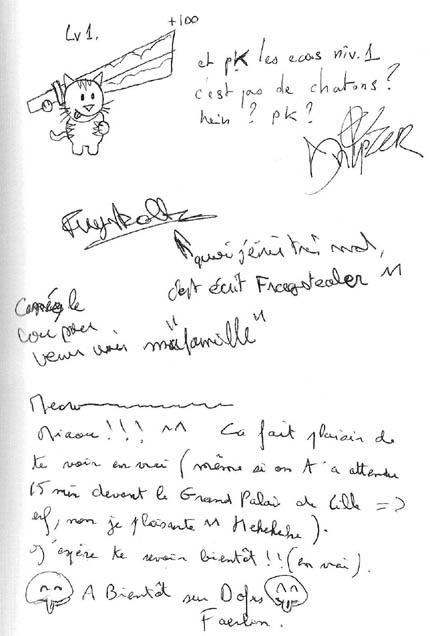 Lv 1.
+100
et pk les ecas niv.1
c'est pas de chatons?
hein? pk?
Fragsteal
quoi j'écris très mal,
c'est écrit Fragstealer ^^
le
coup pour
venir voir "ma famille"
Meow
Miaou!!! ^^ Ca fait plaisir de
te voir en vrai (même si on t'a attendu
15 min devant le Grand Palais de Lille =>
enf, non je plaisante ^^ Hehehehe).
J'espère te revoir bientôt!! (en vrai).
A Bientôt sur Dofus